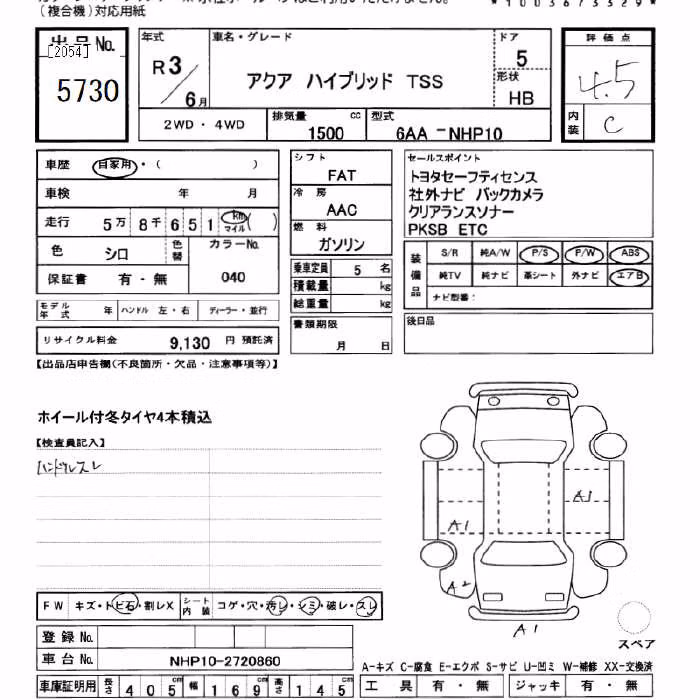 （複合機）対応用紙
*1003673529*
出品No.
[2054]
5730
年式
R3/6月
車名・グレード
アクア ハイブリッド TSS
ドア
5
形状
HB
評価点
4.5
内装
C
2WD・4WD
排気量 cc
1500
型式
6AA-NHP10
車歴 自家用・（ ）
車検 年 月
走行 5万8千651 km マイル ( )
色 シロ 色替
カラーNo.
040
保証書 有・無
モデル年式 年 ハンドル 左・右 ディーラー・並行
リサイクル料金 9,130 円 預託済
シフト
FAT
冷房
AAC
燃料
ガソリン
乗車定員 5 名
積載量 kg
総重量 kg
書類期限
月 日
セールスポイント
トヨタセーフティセンス
社外ナビ バックカメラ
クリアランスソナー
PKSB ETC
装備品
S/R 純A/W P/S P/W ABS
純TV 純ナビ 革シート 外ナビ エアB
ナビ型番：
後日品
【出品店申告欄(不良箇所・欠品・注意事項等)】
ホイール付冬タイヤ4本積込
【検査員記入】
ハンドルスレ
A1
A1
A2
A1
スペア
FW キズ・トビ石・割レX
シート内装 コゲ・穴・汚レ・シミ・破レ・スレ
登録No.
車台No. NHP10-2720860
車庫証明用 長さ 405cm 幅 169cm 高さ 145cm
A-キズ C-腐食 E-エクボ S-サビ U-凹ミ W-補修 XX-交換済
工具 有・無 ジャッキ 有・無